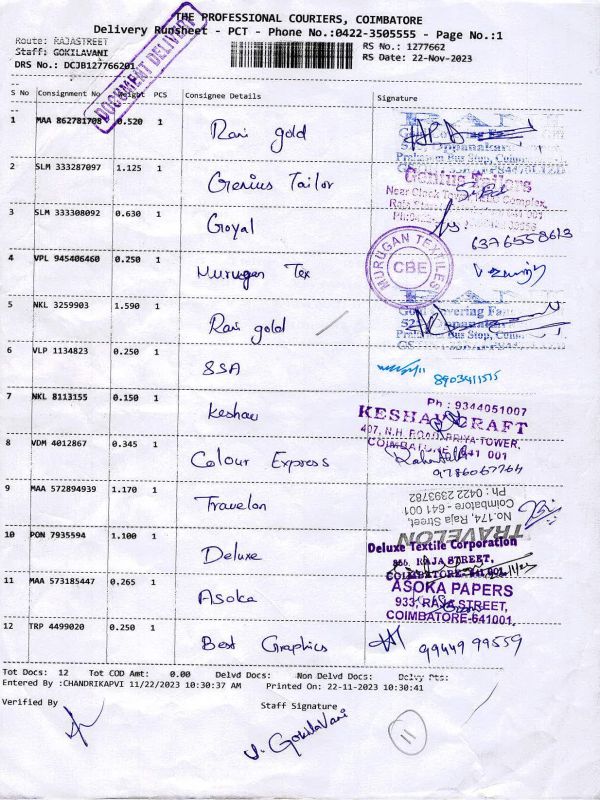 THE PROFESSIONAL COURIERS, COIMBATORE
Delivery Runsheet - PCT - Phone No.:0422-3505555 - Page No.:1
Route: RAJASTREET
RS No.: 1277662
Staff: GOKILAVANI
RS Date: 22-Nov-2023
DRS No.: DCJB127766201
DOCUMENT DELIVERY
S No Consignment No Weight PCS Consignee Details Signature
1 MAA 862781708 0.520 1 Rai gold
2 SLM 333287097 1.125 1 Genius Tailor
Genius Tailors
3 SLM 333308092 0.630 1 Goyal 6376558613
4 VPL 945406460 0.250 1 Murugan Tex
MURUGAN TEXTILES
CBE
5 NKL 3259903 1.590 1 Rai gold
6 VLP 1134823 0.250 1 SSA 8903411515
7 NKL 8113155 0.150 1 Keshav
Ph : 9344051007
KESHAV CRAFT
407, N.H. ROAD, PRIYA TOWER,
COIMBATORE 641 001
8 VDM 4012867 0.345 1 Colour Express 9786067764
9 MAA 572894939 1.170 1 Travelon
TRAVELON
No.174, Raja Street,
Coimbatore - 641 001
Ph : 0422 2393782
10 PON 7935594 1.100 1 Deluxe
Deluxe Textile Corporation
RAJA STREET,
COIMBATORE-641 001
11 MAA 573185447 0.265 1 Asoka
ASOKA PAPERS
933, RAJA STREET,
COIMBATORE-641001,
12 TRP 4499020 0.250 1 Best Graphics 99449 99559
Tot Docs: 12 Tot COD Amt: 0.00 Delvd Docs: Non Delvd Docs: Delvy Pts:
Entered By :CHANDRIKAPVI 11/22/2023 10:30:37 AM Printed On: 22-11-2023 10:30:41
Verified By Staff Signature
V. GokilaVani
11